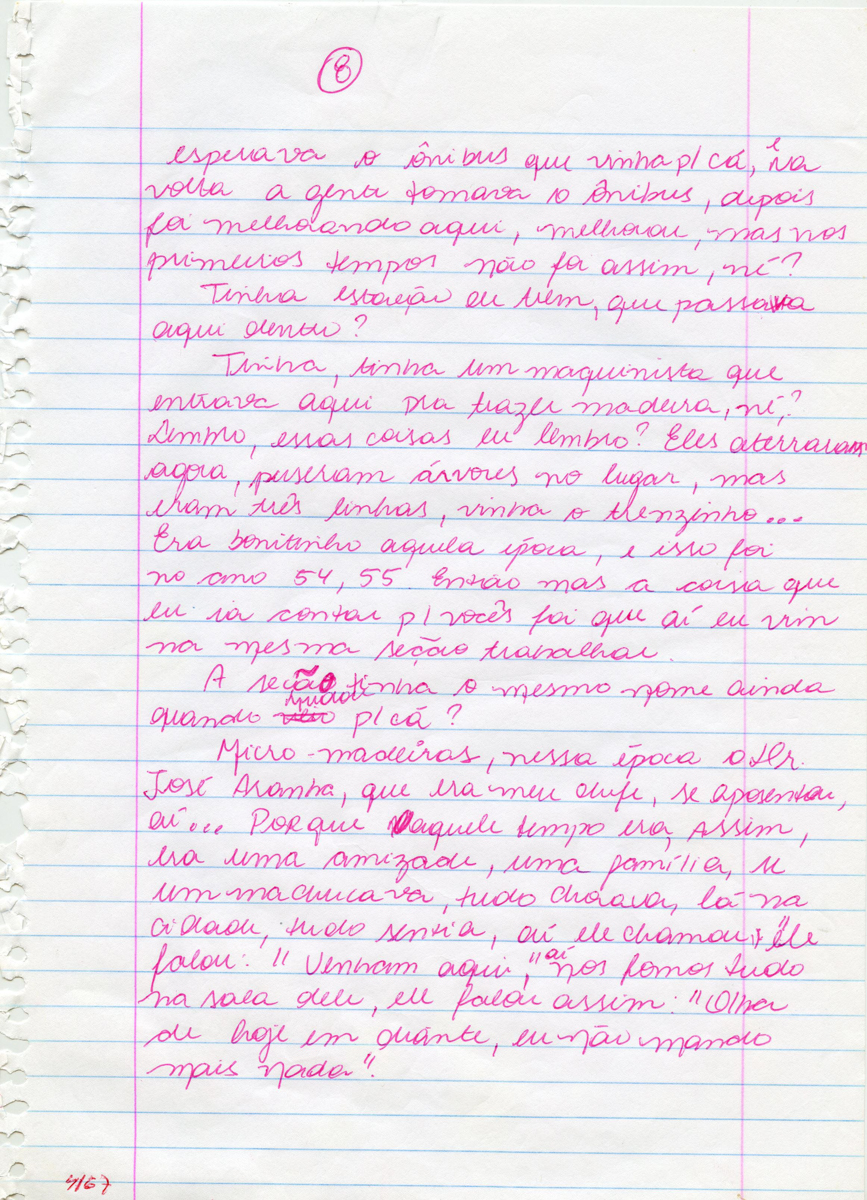 8
esperava o ônibus que vinha p/ cá, e na
volta a gente tomava o ônibus, depois
foi melhorando aqui, melhorou, mas nos
primeiros tempos não foi assim, né?
Tinha estação de trem, que passava
aqui dentro?
Tinha, tinha um maquinista que
entrava aqui pra trazer madeira, né,?
Lembro, essas coisas eu lembro? Eles aterraram
agora, puseram árvores no lugar, mas
eram três linhas, vinha o trenzinho...
Era bonitinho aquela época, e isso foi
no ano 54, 55. Então mas a coisa que
eu ia contar p/ vocês foi que aí eu vim
na mesma seção trabalhar.
A seção tinha o mesmo nome ainda
quando mudou p/ cá?
Micro-madeiras, nessa época o Dr.
José Aranha, que era meu chefe, se aposentou,
aí... Porque naquele tempo era, assim,
era uma amizade, uma família, se
um machucava, tudo chorava, lá na
cidade, tudo sentia, aí ele chamou, ele
falou: "Venham aqui," aí nós fomos tudo
na sala dele, ele falou assim: "Olha
de hoje em diante, eu não mando
mais nada".
4/67